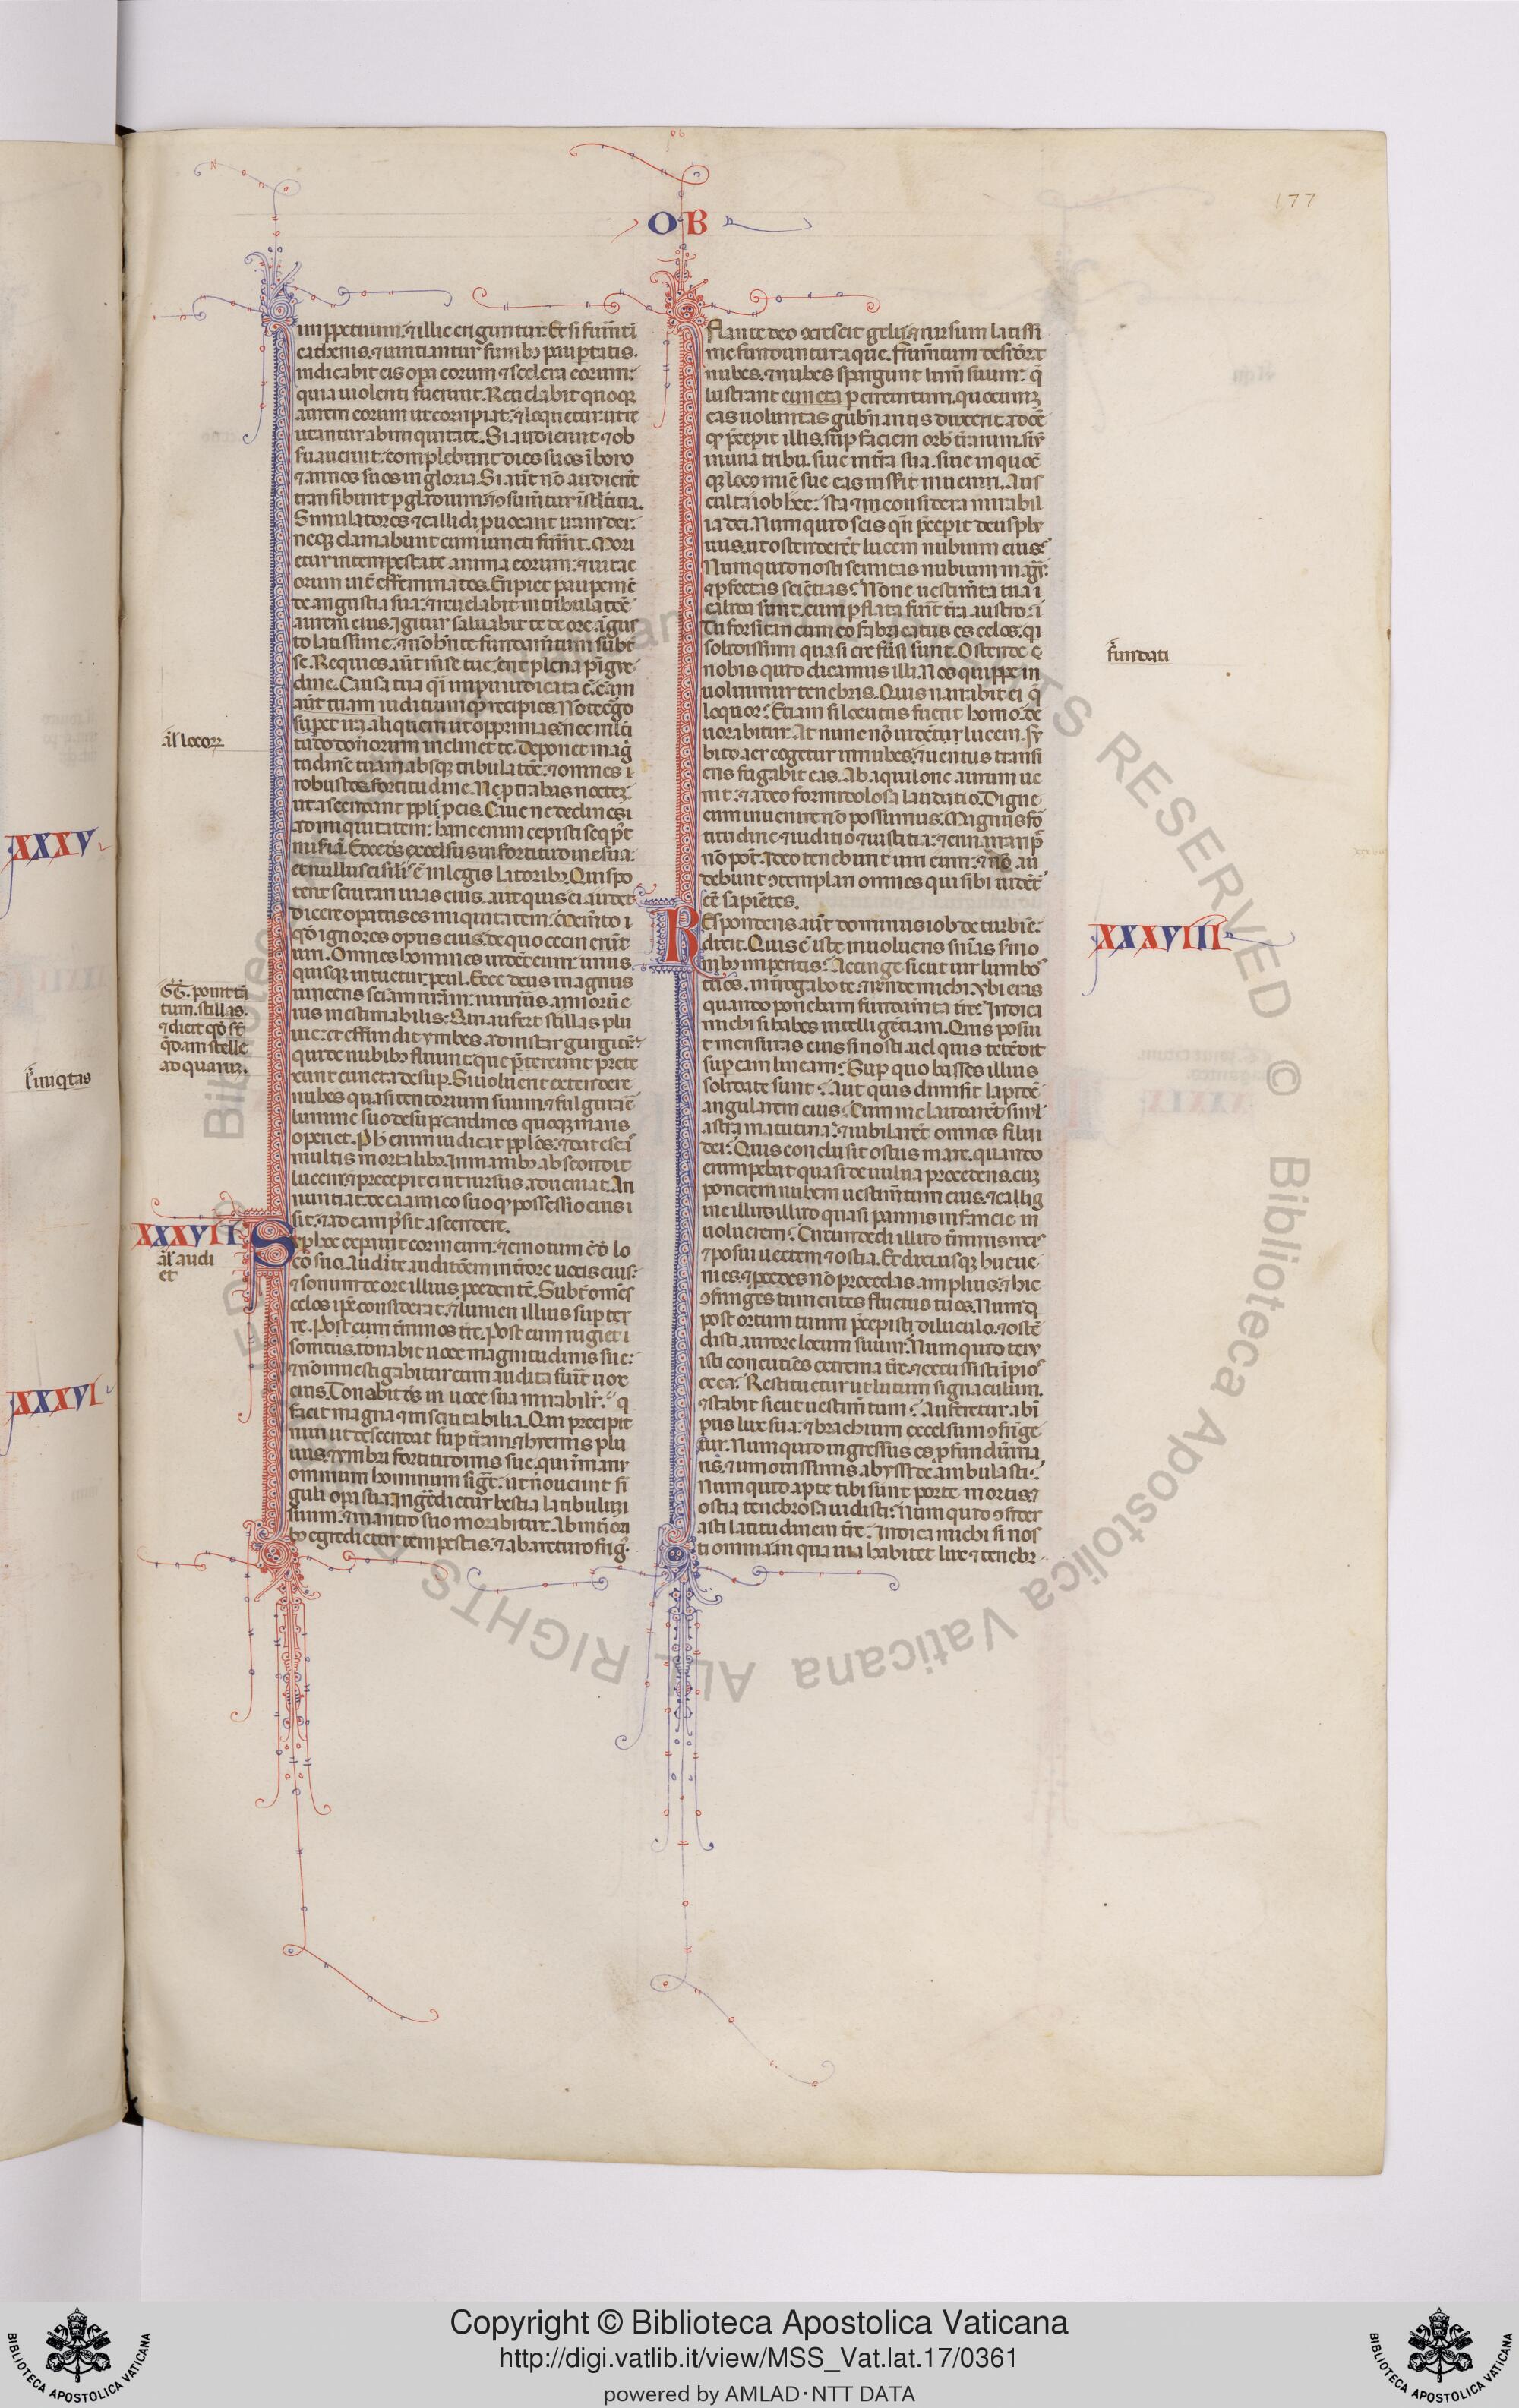 177
OB
in ppetuum. ⁊ illic eriguntur. Et si fuerint ī
cathenis. ⁊ uinciantur funibꝫ pauptatis.
indicabit eis opa eorum ⁊ scelera eorum:
quia uiolenti fuerunt. Reuelabit quoqꝫ
aurem eorum ut corripiat: ⁊ loquetur ut re
uertantur ab iniquitate. Si audierint ⁊ ob
suauerint: complebunt dies suos ī bono
⁊ annos suos in gloria. Si aūt nō audierīt
transibunt p gladium: ⁊ ↄsumētur ī stultitia.
Simulatores ⁊ callidi puocant iram dei:
neqꝫ clamabunt cum uincti fuerint. Mori
etur in tempestate anima eorum: ⁊ uita e
orum int̄ effeminatos. Eripiet paupem
de angustia sua: ⁊ reuelabit in tribulatōe
aurem eius. Igitur saluabit te de ore angus
to latissime: ⁊ nō hn̄te fundam̄tum subt̄
se. Requies aūt m̄se tue: erit plena pīgue
dine. Causa tua qͥ impii iudicata ē: cām
aūt tuam iuditium qꝫ recipies. Nō te ḡo
supet ira aliquem ut opprimas: nec mlti
tudo donorum inclinet te. Depone mag
tudinē tuam absqꝫ tribulatōe: ⁊ omnes
robustos fortitudine. Ne ptrahas noctē:
ut ascendant ppli p eis. Caue ne declines
ad iniquitatem: hanc enim cepisti seq pꝰt
miseriā. Ecce ds excelsus in fortitudine sua:
et nullus ei silis ē in legislatoribꝫ. Quis po
terit scrutari uias eius. aut quis ei audet
dicere opatus es iniquitatem: Mem̄to
qd ignores opus eius. de quo cecinerūt
uiri. Omnes homines uidēt eum: unus
quisqꝫ intuetur pcul. Ecce deus magnus
uincens sciam nr̄am: numus annorū e
ius inestimabilis: Qui aufert stillas plu
uie: et effundit ymbres ad instar gurgitū:
qui de nubibꝫ fluunt: que p̄texunt p̄
cuncta desup. Si uoluerit extendere
nubes quasi tentorium suum: ⁊ fulgurare
lumine suo desup: cardines quoqꝫ maris
operiet. P h enim iudicat pplos: ⁊ dat escas
multis mortalibꝫ. In manibꝫ abscondit
lucem: ⁊ precepit ei ut rursus adueniat. An
nuntiat de ea amico suo qꝫ possessio eius
sit: ⁊ ad eam p̄sit ascendere.
XXXVII
Sup hoc expauit cor meum: ⁊ emotum ē d lo
co suo. Audite auditōem in t̄rore uocis eius:
⁊ sonum de ore illius pcedentē. Subt̄ omēs
celos ipē considerat: ⁊ lumen illius sup ter
re. Post eum
sonitus. tonabit uoce magnitudinis sue:
⁊ nō inuestigabitur cum audita fuīt uox
eius. Tonabit ds in uoce sua mirabilr: q
facit magna ⁊ inscrutabilia. Qui precipit
niui ut descendat sup t̄ram: ⁊ hyemis plu
uiis. ⁊ ymbri fortitudinis sue. qui ī manu
omnium hominum signat: ut nouerint si
guli opa sua. Ingredietur bestia latibulum
suum: ⁊ in antro suo morabitur. Ab int̄iori
bꝫ egredietur tempestas: ⁊ ab arcturo frig.
Flante deo ↄcrescit gelu: ⁊ rursum latissi
me funduntur aque. Frum̄tum desiderat
nubes. ⁊ nubes spargunt lum̄ suum: q̄
lustrant cuncta p circuitum. quocumqꝫ
eas uoluntas gub̄nantis duxerit ad oē
qꝫ p̄cepit illis. sup faciem orbis t̄rarum. siue
in una tribu. siue in t̄ra sua. siue in quocū
qꝫ loco mīe sue eas iusserit inueniri. Aus
culta iob hec: sta ⁊ m considera mirabil
ia dei. Numquid scis qn̄ p̄cepit deus ply
uiis. ut ostenderēt lucem nubium eius:
Numquid nosti semitas nubium magnas:
⁊ pfectas scientias: Nonne uestim̄ta tua
calida sunt. cum pflata fuīt t̄ra austro:
Tu forsitan cum eo fabricatus es celos. qi
solidissimi quasi ere fusi sunt. Ostende
nobis quid dicamus illi: Nos quippe in
uoluimur tenebris. Quis narrabit ei q̄
loquor: Etiam si locutus fuerit homo: de
uorabitur. At nunc nō uidētur lucem. sy
bito aer cogetur in nubes: ⁊ uentus transi
ens fugabit eas. Ab aquilone aurum ue
nit: ⁊ a deo formidolosa laudatio. Digne
eum inuenire nō possumus. Magnus fo
titudine ⁊ iuditio ⁊ iustitia: ⁊ enarrari
nō pot̄. Ideo timebunt eum: ⁊ nō au
debunt ↄtemplari omnes qui sibi uident
cē sapientes.
XXXVIII
Respondens aūt dominus iob de turbīe:
dixit. Quis ē iste inuoluens snias smo
nibꝫ imperitis: Accinge sicut uir lumbos
tuos. int̄rogabo te: ⁊ rn̄de michi. Vbi eras
quando ponebam fundam̄ta t̄re: Indica
michi si habes intelligentiam. Quis posuit
mensuras eius si nosti. uel quis tetendit
sup eam lineam: Sup quo basses illius
solidate sunt: Aut quis dimisit lapidē
angularem eius: Cum me laudarēt siml
astra matutina: ⁊ iubilarēt omnes filii
dei: Quis conclusit ostiis mare. quando
erumpebat quasi de uulua procedens. cū
ponerem nubem uestim̄tum eius. ⁊ callig
ine illud quasi pannis infancie in
uoluerem: Circumdedi illud t̄minis meis
⁊ posui uectem ⁊ ostia. Et dixi usqꝫ huc ue
nies. ⁊ pcedes nō procedas amplius. ⁊ hic
ↄfringes tumentes fluctus tuos. Numqͥd
post ortum tuum p̄cepisti diluculo. ⁊ ostē
disti aurore locum suum: Numquid tenu
isti concutiēs extrema t̄re. ⁊ excussisti īpios
ex ea: Restituetur ut lutum signaculum.
⁊ stabit sicut uestim̄tum: Auferetur ab ī
piis lux sua: ⁊ brachium excelsum ↄfringe
tur. Numquid ingressus es pfundum ma
ris. ⁊ in nouissimis abyssi deambulasti:
Numquid apte tibi sunt porte mortis: ⁊
ostia tenebrosa uidisti: Numquid ↄsider
asti latitudinem t̄re: Indica michi si nos
ti omnia. in qua uia habitet lux ⁊ tenebr
fundati
ał audi
et
tum. stillas.
qdam stelle
ad quariū.
XXXV
XXXVI
Copyright © Biblioteca Apostolica Vaticana
http://digi.vatlib.it/view/MSS_Vat.lat.17/0361
powered by AMLAD·NTT DATA
BIBLIOTECA APOSTOLICA VATICANA
BIBLIOTECA APOSTOLICA VATICANA